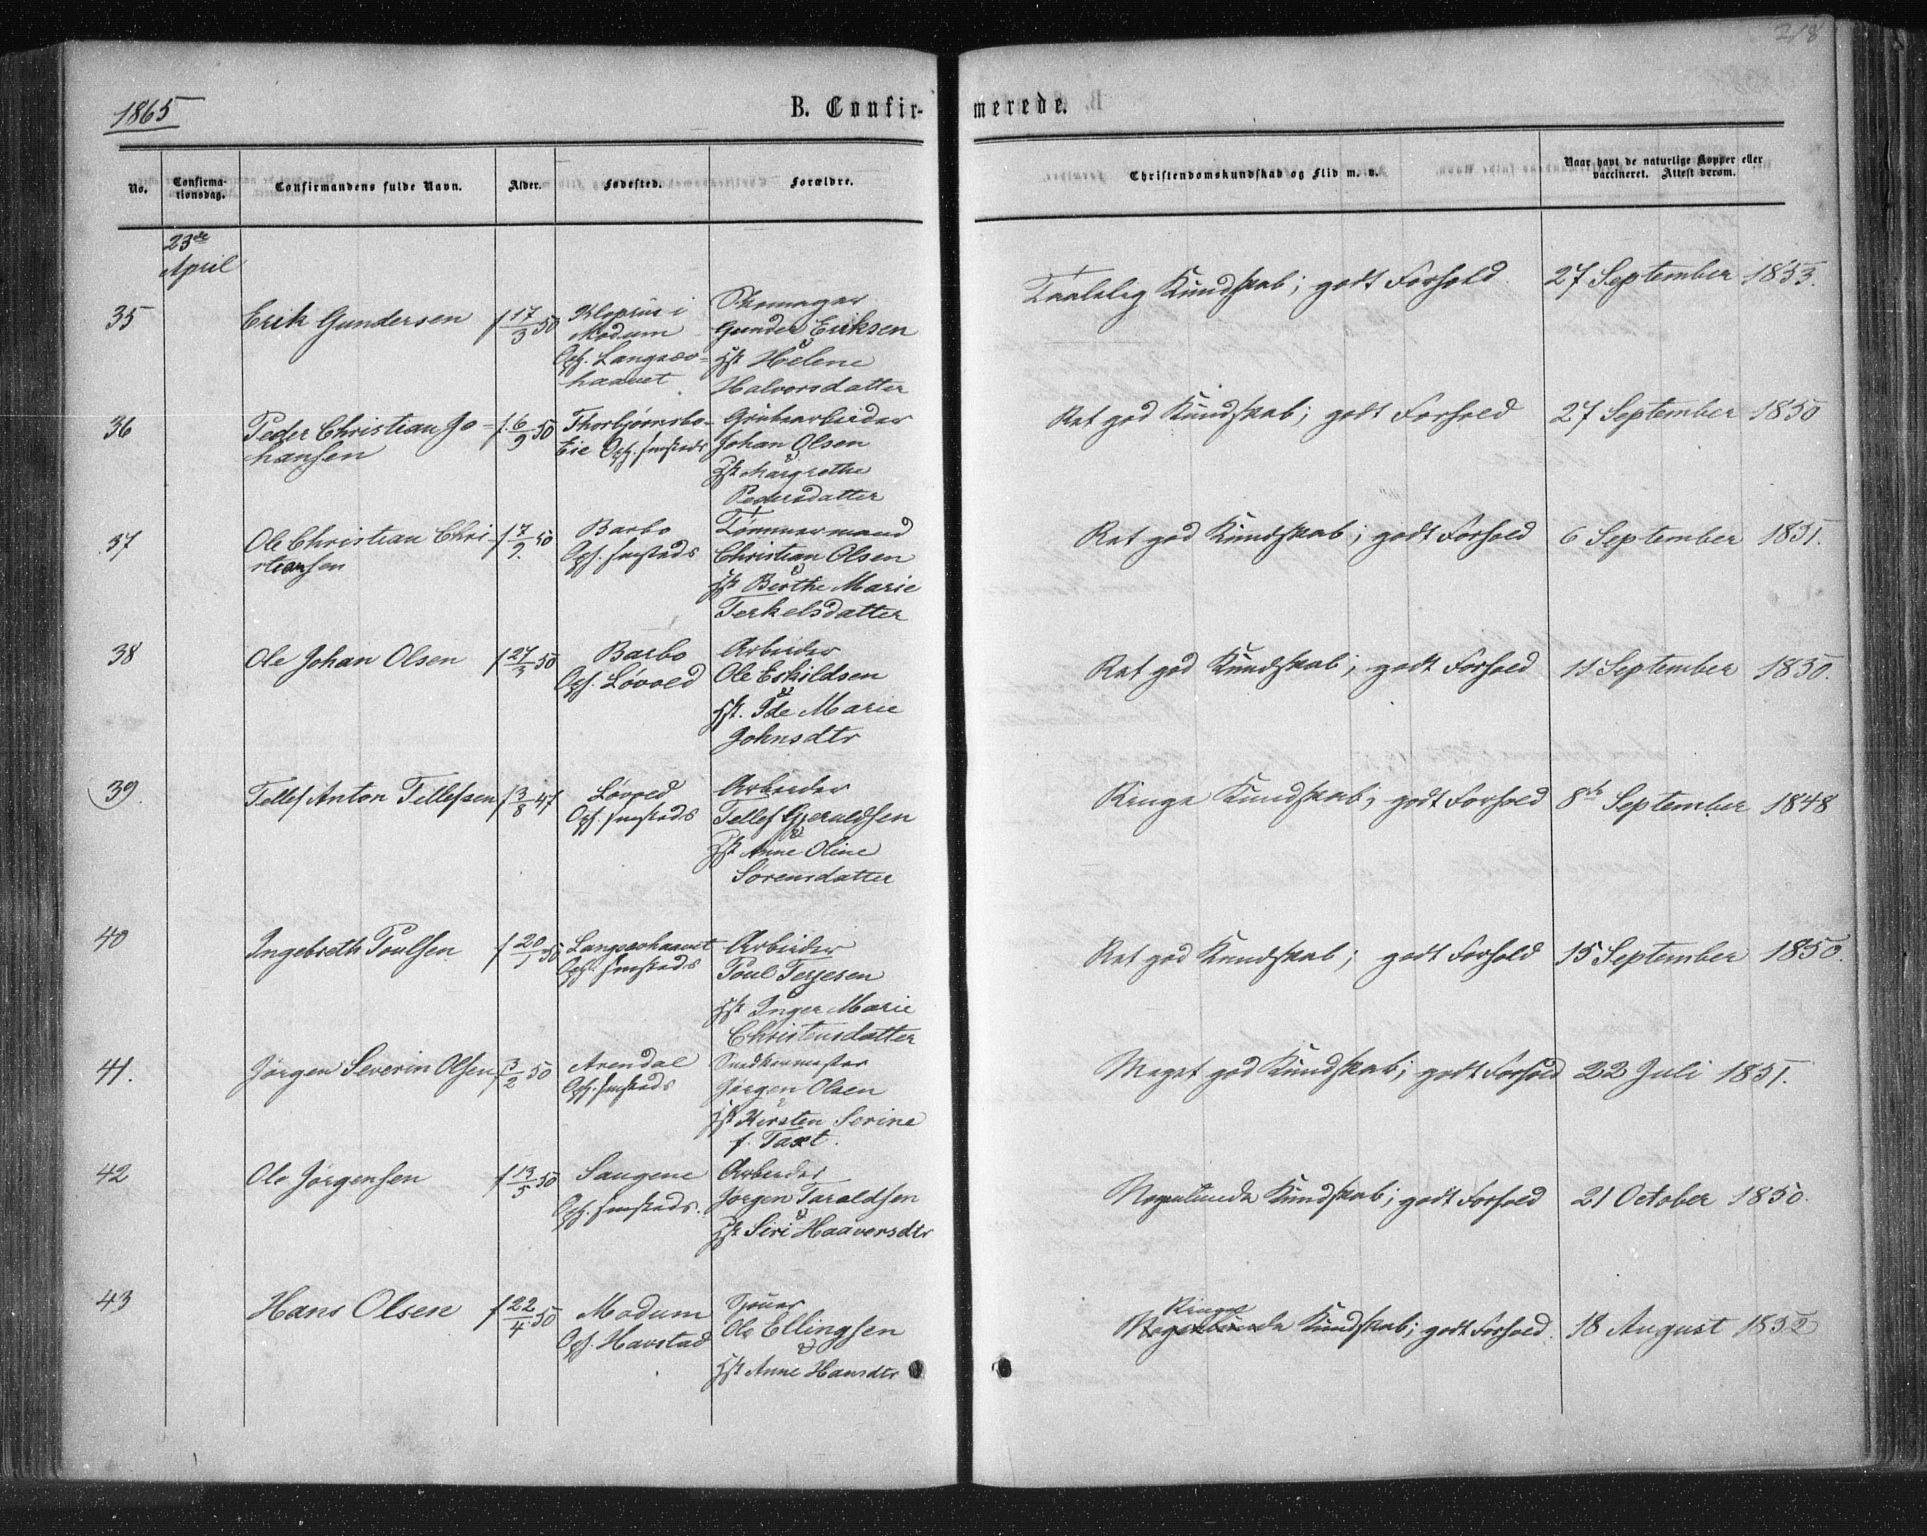 218
1865
B. Confir-
merede.
No.
Confirma-
tionsdag.
Confirmandens fulde Navn.
Alder.
Fødested.
Forældre.
Christendomskundskab og Flid m. v.
Naar havt de naturlige Kopper eller
vaccineret. Attest derom.
23de
April
35 Erik Gundersen f 17/3 50
Modum
Oph. Langsæv-
haavet
Skomager
Gunder Eriksen
&
Hst Helene
Halvorsdatter
Taalelig Kundskab; godt Forhold 27 September 1853.
36 Peder Christian Jo-
hansen
f. 6/9 50
Thorbjørnsbo-
Eie Oph. smsteds
Grubearbeider
Johan Olsen
&
Hst Margrethe
Pedersdatter
Ret god Kundskab; godt Forhold 27 September 1850
37 Ole Christian Chri-
stiansen
f 7/9 50
Barbo
Oph. smsteds
Tømmermand
Christian Olsen
&
Hst Berthe Marie
Terkelsdatter
Ret god Kundskab; godt Forhold 6 September 1851.
38 Ole Johan Olsen f 27/3 50
Barbo
Oph. Løvold
Arbeider
Ole Eskildsen
&
Hst. Ide Marie
Johnsdtr
Ret god Kundskab; godt Forhold 11 September 1850.
39. Tellef Anton Tellefsen f 3/8 47
Løvold
Oph. smsteds
Arbeider
Tellef Gjeraldsen
&
Hst Anne Oline
Sørensdatter
Ringe Kundskab, godt Forhold 8de September 1848
40 Ingebreth Poulsen f 20/1 50
Langsævhaavet
Oph. smsteds
Arbeider
Poul Terjesen
&
Hst Inger Marie
Christensdatter
Ret god Kundskab; godt Forhold 15 September 1850.
41. Jørgen Severin Olsen f 3/2 50
Arendal
Oph. smsteds
Snedkermester
Jørgen Olsen
&
Hst Kirsten Serine
f. Taxt.
Meget god Kundskab; godt Forhold 22 Juli 1851.
42 Ole Jørgensen f 13/5 50
Saugene
Oph. smsteds.
Arbeider
Jørgen Taraldsen
&
Hst Siri Haaversdtr
Nogenlunde Kundskab; godt Forhold 21 October 1850.
43 Hans Olsen f 22/4 50
Modum
Oph. Havstad
Sjouer
Ole Ellingsen
&
Hst Anne Hansdtr
Ringe
Nogenlunde Kundskab; godt Forhold. 18 August 1852